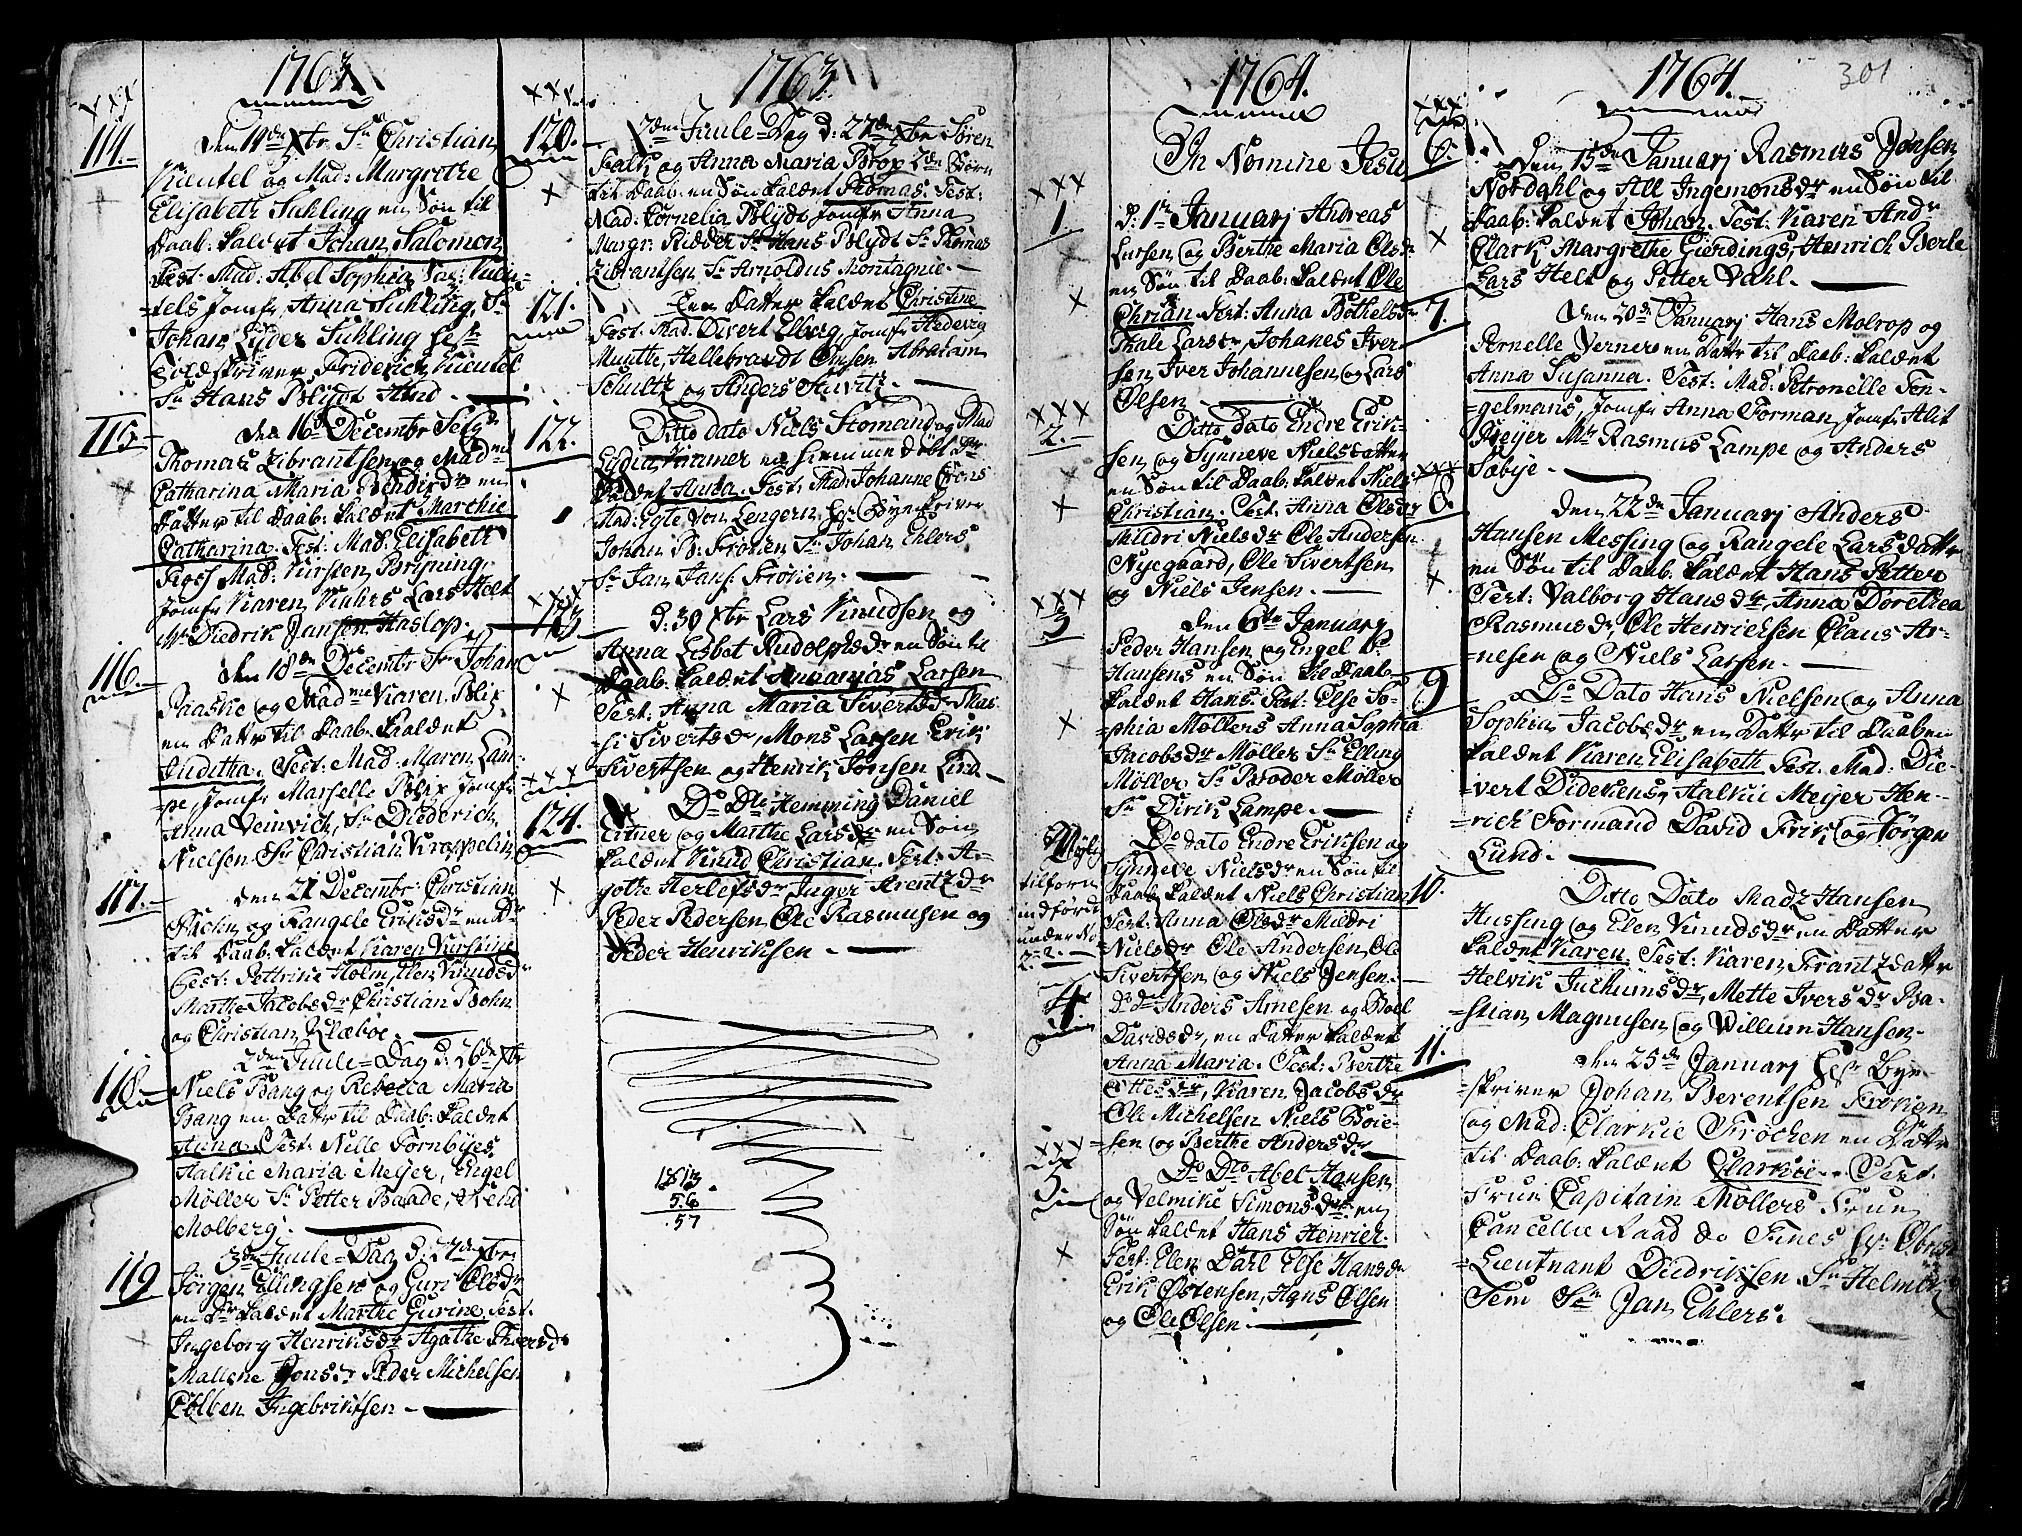 1763
114.
Den 14de Xbr Sr Christian
Kientel og Mad: Margrethe
Elisabeth Suhling en Søn til
Daab: kaldet Johan Salomon
Test: Mad: Abel Sophia
tels Jomfr Anna Suhling, Sr
Johan Lyder Suhling
Toldskriver Friderich Kientel
Sr Hans Blydt
115
den 16de Decembr
Thomas Zibrantsen og Mad
Catharina Maria en
Datter til Daab: kaldet Marchie
Catharina. Test: Mad: Elisabeth
Mad: Kirsten Bryning
Jomfr Karen Lars Helt
Mr Diedrik Jansen Haslop.
116.
den 18de Decembr Sr Johan
Paaske og Madme Karen Blix
en Datter til Daab: kaldet
Juditha. Test: Mad: Maren Lam-
pe, Jomfr Marselle Blix Jomfr
Anna Weinvich, Sr Diederich
Nielsen Sr Christian Kroppelin
117.
den 21 Decembr: Christian
og Rangele Eriksdr en Dr
til Daab: kaldet Karen Kirstine
Test: Pettrine Holm, Elen Knudsdr
Marthe Jacobsdr Christian Bohn
og Christian Klæboe.
118
2den Juule-Dag d: 26de Xbr
Niels Bang og Rebecca Maria
Bang en Datr til Daab: kaldet
Anna. Test: Nille Tornbyes
Aalkie Maria Meyer, Engel
Møller Sr Petter Baade,
Molberg.
119
3de Juule-Dag d: 27de Xbr
Jørgen Ellingsen og Guri Olsdr
en Dr kaldet Marthe Gurine Test:
Ingeborg Henriksdr Agathe
Mallene Jonsdr Peder Michelsen
Colben Ingebriktsen
1763.
120.
3den Juule-Dag d: 27de Xbr Søren
Falk og Anna Maria Brop
til Daab: en Søn kaldet Thomas: Test:
Mad: Cornelia Blydt Jomfr Anna
Margr: Ridder Sr Hans Blydt Sr Thomas
Zibrantsen Sr Arnoldus Montagnie.
121.
Een Datter kaldet Christine
Test: Mad: Divert Elberg, Jomfr
Munthe, Hellebrandt Abraham
Schultz og Anders
122.
Ditto dato Niels Stomand og Mad
Lydia Kramer en hiemmedøbt Dr
kaldet Anna. Test: Mad: Johanne
Mad: Egte von Lengern, Hr Byeskriver
Johan B: Frøkien Sr Johan Ehlers
Sr Jan Jans: Frøkien.
123
d: 30 Xbr Lars Knudsen og
Anna Lisbet Rudolphsdr en Søn til
Daab: kaldet Annanjas Larsen
Test: Anna Maria Sivertsdr
Sivertsdr, Mons Larsen Erik
Sivertsen og Henrik Jonsen
124.
Do Dto Hemming Daniel
og Marthe Larsdr en Søn
kaldet Knud Christian. Test: A-
gothe Herlefsdr Inger Arentzdr
Peder Pedersen Ole Rasmusen og
Peder Henriksen
1813
56
57
1764.
In Nomine Jesu
1.
D: 1te Januarj Andreas
Larsen og Berthe Maria Olsdr
en Søn til Daab: kaldet Ole
Chrian Test: Anna Bothelsdr
Thale Larsdr, Johanes Iver-
sen Iver Johannesen og Lars
Olsen
2.
Ditto dato Endre Erik-
sen og Synneve Nielsdatter
en Søn til Daab: kaldet Niels
Christian. Test: Anna Olsdr
Mildri Nielsdr Ole Andersen
Nyegaard, Ole Sivertsen
og Niels Jensen.
3
den 6te January
Peder Hansen og Engel
Hansens en Søn til Daab
kaldet Hans. Test: Else So-
phia Møllers Anna Sophia
Jacobsdr Møller Sr Elling
Møller Sr Broder Møller
Sr Dirik Lampe.
tilforn
indført
under No
2.
Do dato Endre Eriksen og
Synneve Nielsdr en Søn til
Daab kaldet Niels Christian
Test: Anna Olsdr Mildri
Nielsdr Ole Andersen, Ole
Sivertsen og Niels Jensen.
4.
Do do Anders Arnesen og Boel
Davidsdr, en Datter kaldet
Anna Maria. Test: Berthe
Ottesdr, Karen Jacobsdr
Ole Michelsen Niels Boie-
sen og Berthe Andersdr
5.
Do Dto Abel Hansen
og Velmike Simonsdr en
Søn kaldet Hans Henrier.
Test: Elen Dahl Else Hansdr
Erik Østensen, Hans Olsen
og Ole Olsen.
1764.
301
6.
Den 15de Januarj Rasmus Jonsen
Nordahl og All Ingemonsdr en Søn til
Daab: kaldet Johan. Test: Karen Andr
Clark, Margrethe Gierdings, Henrich Berle
Lars Helt og Petter Vahl.
7.
Den 20de Januarj Hans Molrop og
Pernelle Verner en Datr til Daab: kaldet
Anna Susanna. Test: Mad: Petronelle Fon-
gelmans, Jomfr Anna Forman, Jomfr Alit
Meyer Mr Rasmus Lampe og Anders
Sæbye
8.
Den 22de Januarj Anders
Hansen Messing og Rangele Larsdatr
en Søn til Daab: kaldet Hans Petter
Test: Valborg Hansdr, Anna Dorethea
Rasmusdr, Ole Henriksen Claus Ar-
nesen og Niels Larsen.
9
Do Dato Hans Nielsen og Anna
Sophia Jacobsdr en Datter til Daaben
kaldet Karen Elisabeth Test: Mad: Die-
vert Didekens, Aalkie Meyer Hen-
rich Formand David Frik og Jørgen
Lund.
10.
Ditto Dato Madz Hansen
Hussing og Elen Knudsdr en Datter
kaldet Karen. Test: Karen Frantzdatr
Helvik Juchumsdr, Mette Iversdr Ba-
stian Magnusen og Willum Hansen
11.
den 25de Januarj Hr Bye-
skriver Johan Berentsen Frøkien
og Mad: Clarkie Frochen en Datr
til Daab: kaldet Clarkie. Test:
Frue Capitain Møllers Frue
Cancellie Raad de Fines Hr Obrist
Lieutnant Diedriksen Sr Helmik
Tem Sr Jan Ehlers.